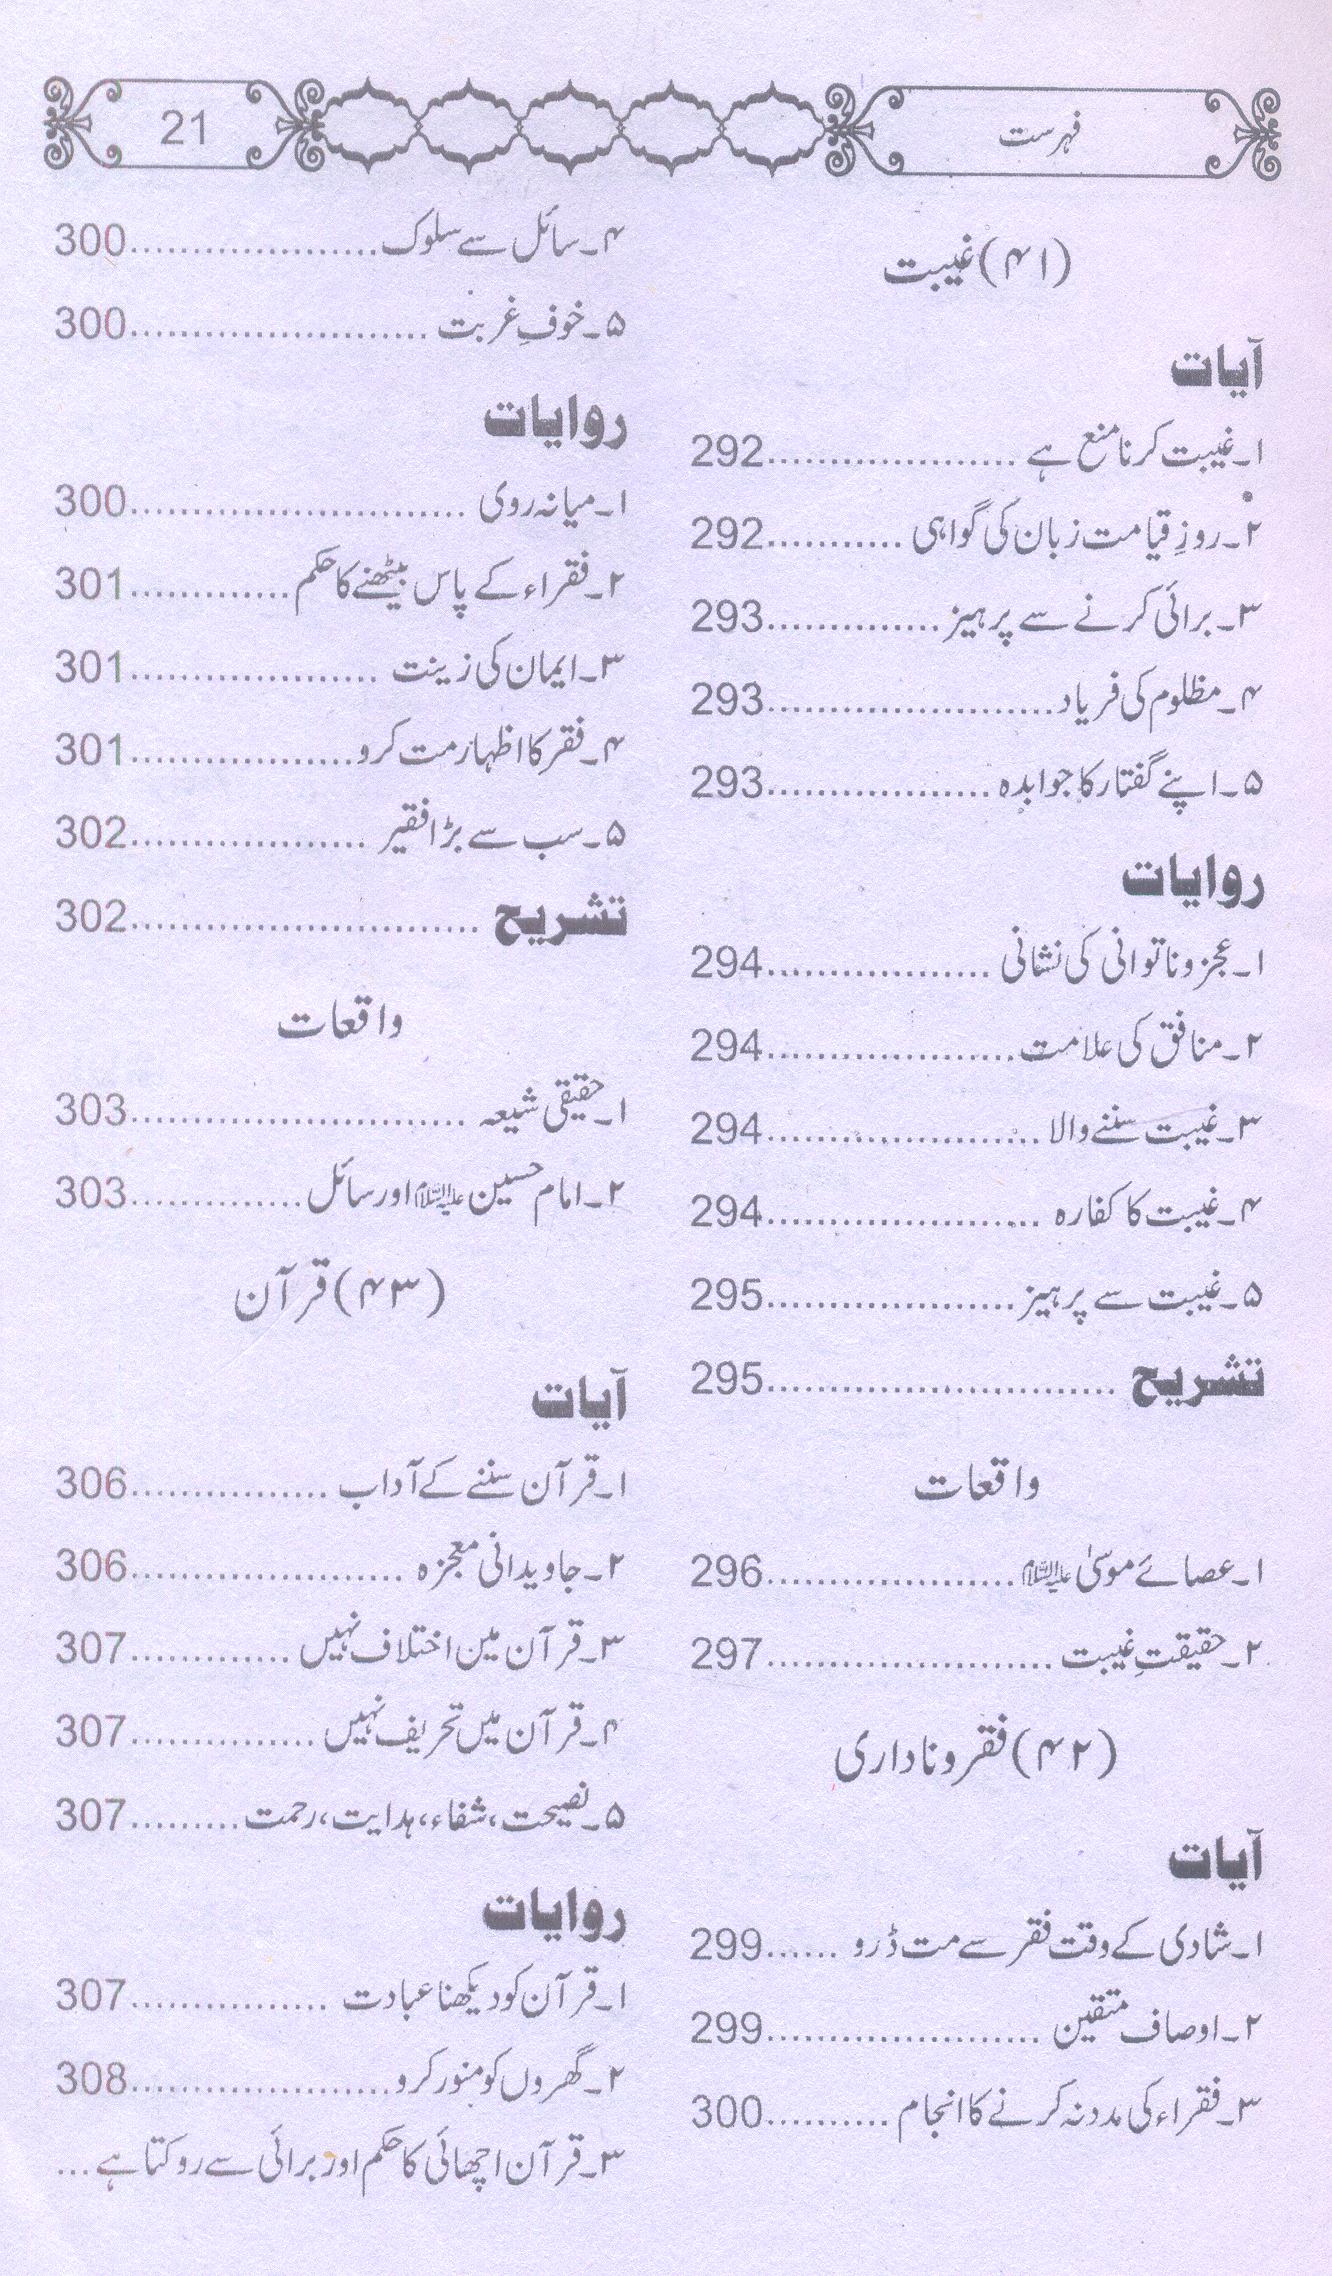 فہرست
21
(۴۱) غیبت
آیات
۱۔غیبت کرنا منع ہے ..................... 292
۲۔روزِ قیامت زبان کی گواہی ........... 292
۳۔برائی کرنے سے پرہیز .............. 293
۴۔مظلوم کی فریاد ....................... 293
۵۔اپنے گفتار کا جوابدہ .................. 293
روایات
۱۔عجز و ناتوانی کی نشانی .................. 294
۲۔منافق کی علامت .................... 294
۳۔غیبت سننے والا ...................... 294
۴۔غیبت کا کفارہ ...................... 294
۵۔غیبت سے پرہیز .................... 295
تشریح ............................ 295
واقعات
۱۔عصائے موسیٰ علیہ السلام .................... 296
۲۔حقیقتِ غیبت ....................... 297
(۴۲) فقر و ناداری
آیات
۱۔شادی کے وقت فقر سے مت ڈرو ...... 299
۲۔اوصاف متقین ...................... 299
۳۔فقراء کی مدد نہ کرنے کا انجام .......... 300
۴۔سائل سے سلوک .................... 300
۵۔خوفِ غربت ........................ 300
روایات
۱۔میانہ روی ........................... 300
۲۔فقراء کے پاس بیٹھنے کا حکم ............. 301
۳۔ایمان کی زینت .................... 301
۴۔فقر کا اظہار مت کرو .................. 301
۵۔سب سے بڑا فقیر ................... 302
تشریح ............................ 302
واقعات
۱۔حقیقی شیعہ ........................... 303
۲۔امام حسین علیہ السلام اور سائل .............. 303
(۴۳) قرآن
آیات
۱۔قرآن سننے کے آداب ................ 306
۲۔جاویدانی معجزہ ...................... 306
۳۔قرآن مین اختلاف نہیں ............. 307
۴۔قرآن میں تحریف نہیں ............... 307
۵۔نصیحت، شفاء، ہدایت، رحمت ......... 307
روایات
۱۔قرآن کو دیکھنا عبادت ................ 307
۲۔گھروں کو منور کرو ..................... 308
۳۔قرآن اچھائی کا حکم اور برائی سے روکتا ہے ...